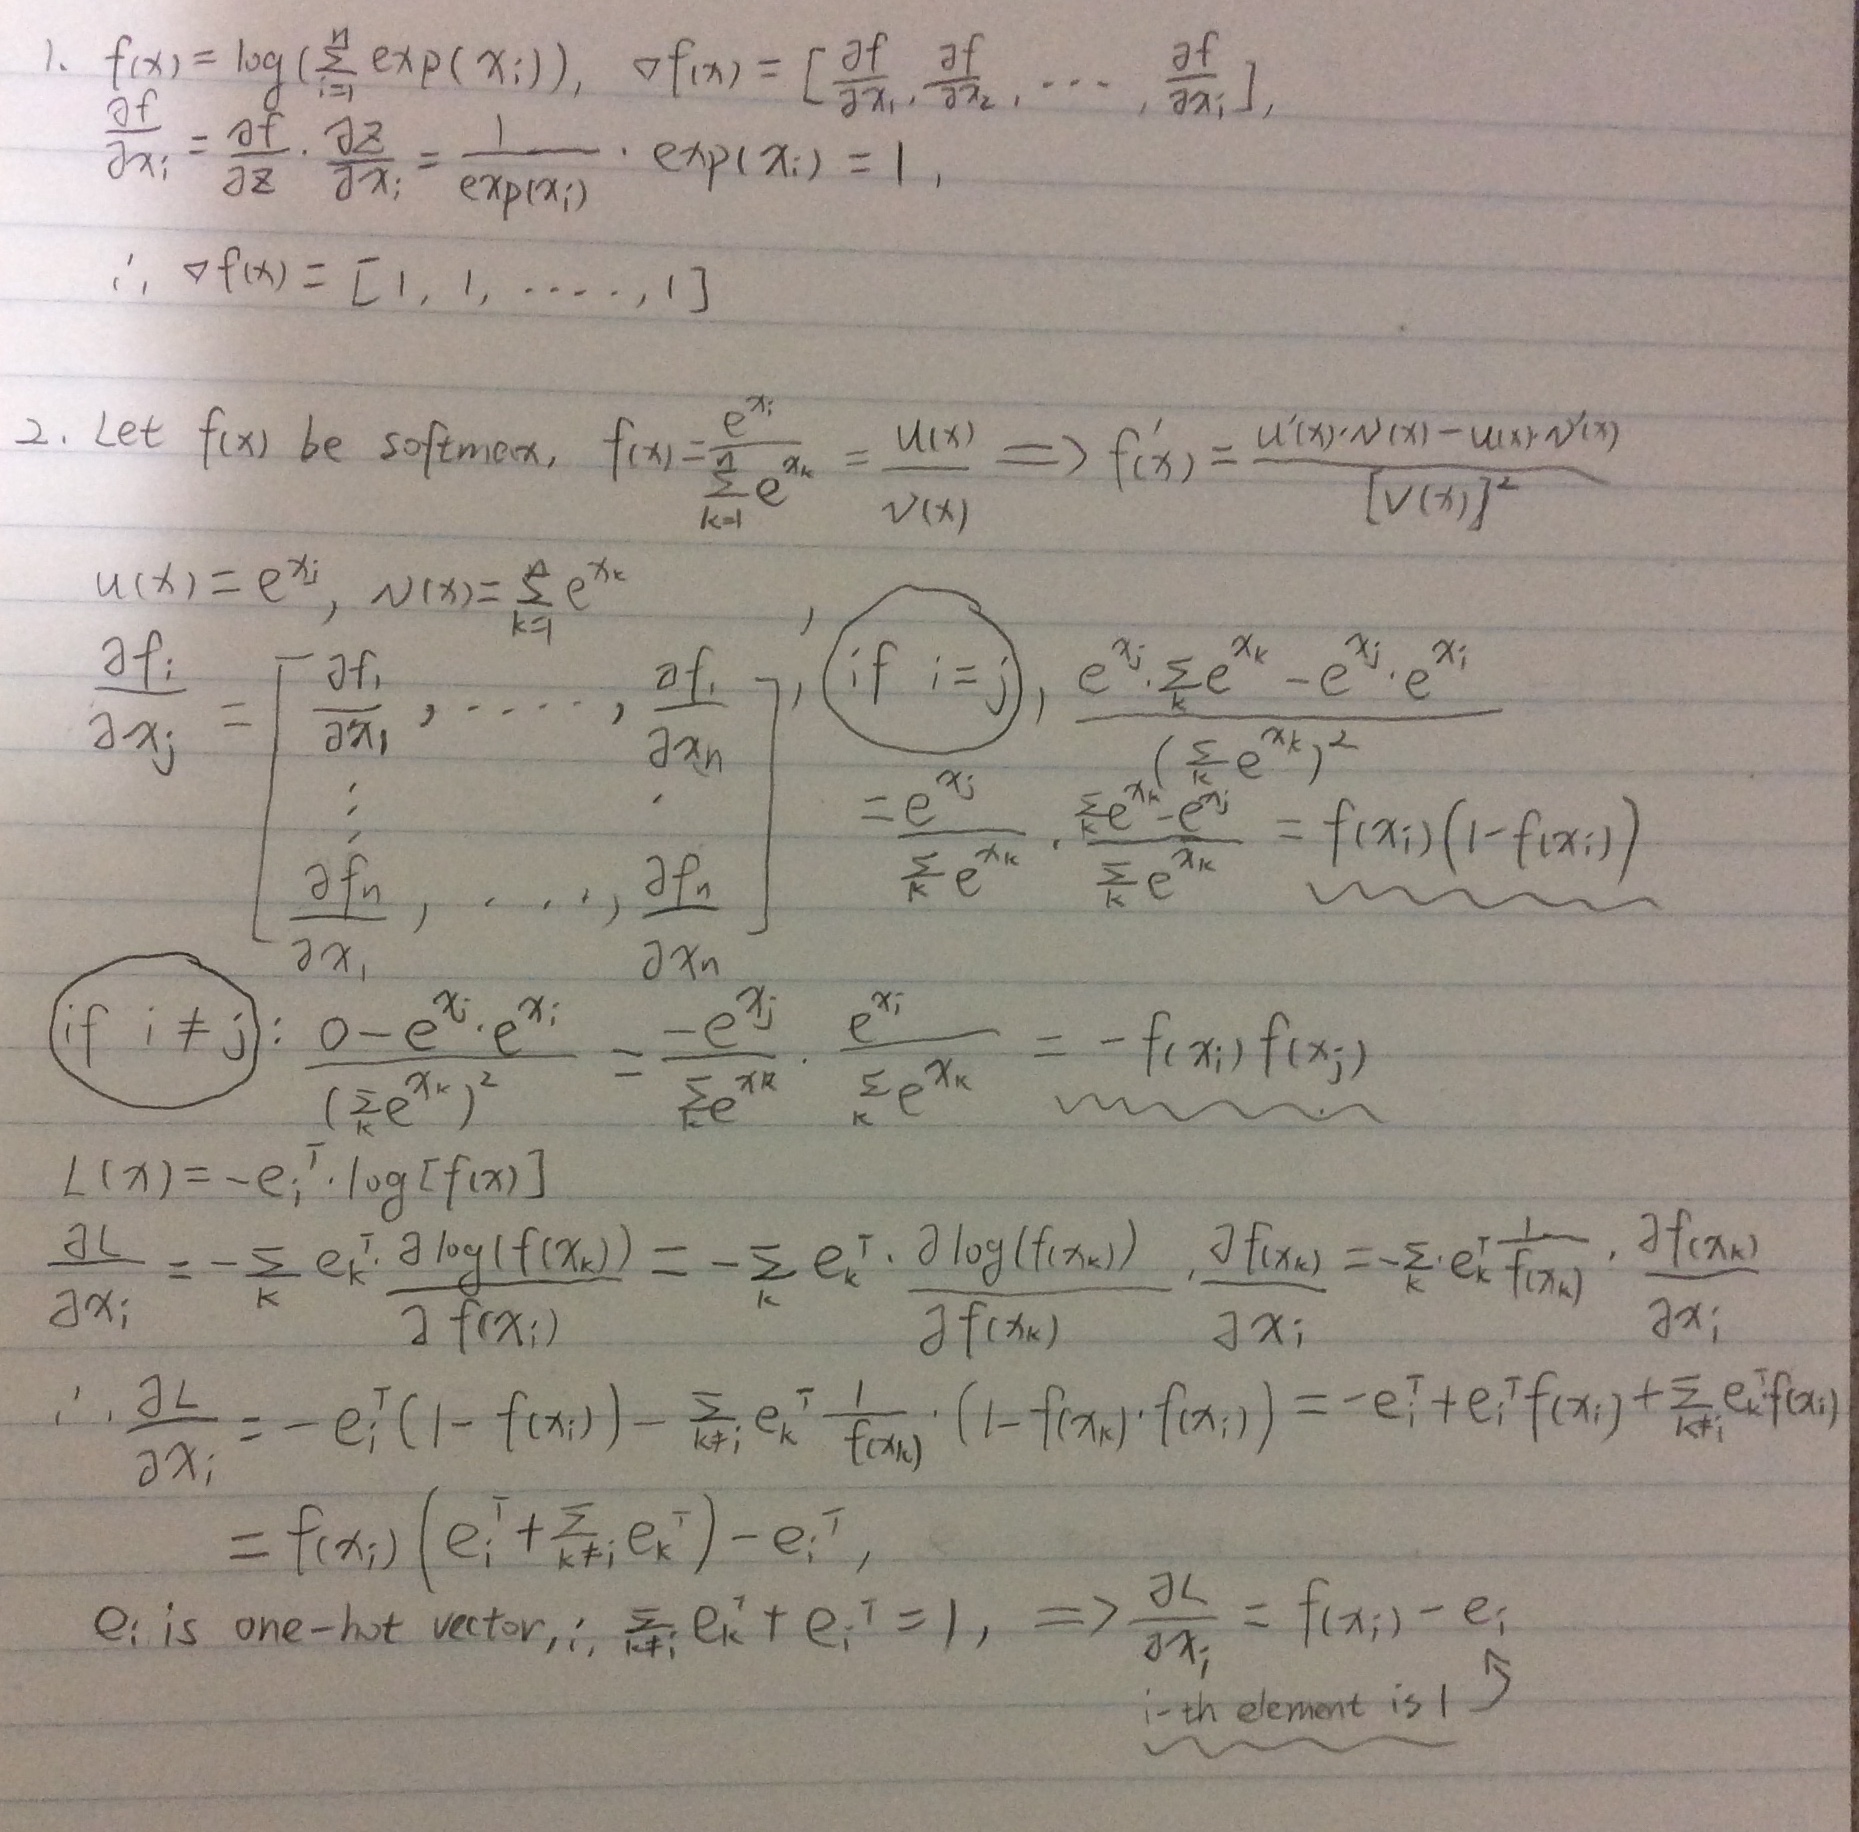 1. f(x) = log(∑_{i=1}^{n} exp(x_i)), ∇f(x) = [∂f/∂x_1, ∂f/∂x_2, ...., ∂f/∂x_i],
∂f/∂x_i = ∂f/∂z · ∂z/∂x_i = 1/exp(x_i) · exp(x_i) = 1,
∴ ∇f(x) = [1, 1, ....., 1]
2. Let f(x) be softmax, f(x) = e^{x_i}/∑_{k=1}^{n} e^{x_k} = u(x)/v(x) => f'(x) = (u'(x)·v(x) - u(x)·v'(x))/[v(x)]^2
u(x) = e^{x_j}, v(x) = ∑_{k=1}^{n} e^{x_k},
∂f_i/∂x_j = [∂f_1/∂x_1, ...., ∂f_1/∂x_n ⋮ ∂f_n/∂x_1, ...., ∂f_n/∂x_n], if i=j, (e^{x_j}·∑_k e^{x_k} - e^{x_j}·e^{x_i})/(∑_k e^{x_k})^2
= e^{x_j}/∑_k e^{x_k} · (∑_k e^{x_k} - e^{x_j})/∑_k e^{x_k} = f(x_i)(1-f(x_i))
if i≠j: (0 - e^{x_j}·e^{x_i})/(∑_k e^{x_k})^2 = -e^{x_j}/∑_k e^{x_k} · e^{x_i}/∑_k e^{x_k} = -f(x_i)f(x_j)
L(x) = -e_i^T·log[f(x)]
∂L/∂x_i = -∑_k e_k^T·∂log(f(x_k))/∂f(x_i) = -∑_k e_k^T·∂log(f(x_k))/∂f(x_k) · ∂f(x_k)/∂x_i = -∑_k·e_k^T 1/f(x_k) · ∂f(x_k)/∂x_i
∴ ∂L/∂x_i = -e_i^T(1-f(x_i)) - ∑_{k≠i} e_k^T 1/f(x_k) · (1-f(x_k)·f(x_i)) = -e_i^T + e_i^T f(x_i) + ∑_{k≠i} e_k^T f(x_i)
= f(x_i)(e_i^T + ∑_{k≠i} e_k^T) - e_i^T,
e_i is one-hot vector, ∴ ∑_{k≠i} e_k^T + e_i^T = 1, => ∂L/∂x_i = f(x_i) - e_i
i-th element is 1